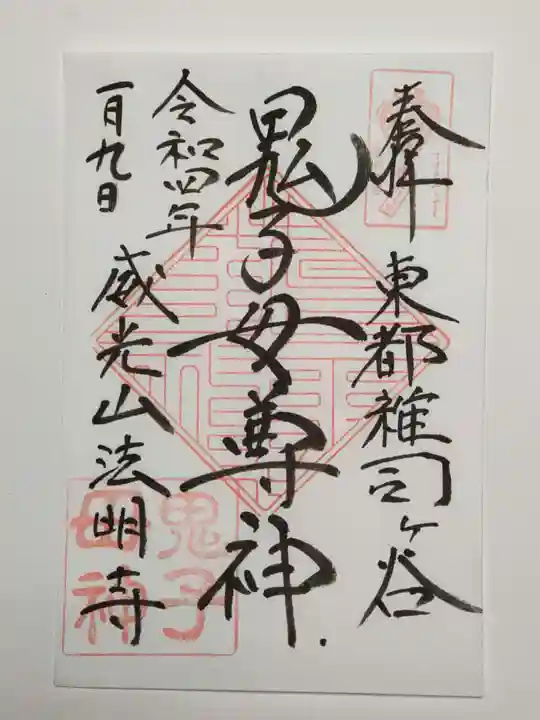 奉拝
東都雑司ヶ谷
鬼子母尊神
令和四年
一月九日
威光山法明寺
鬼子
母神